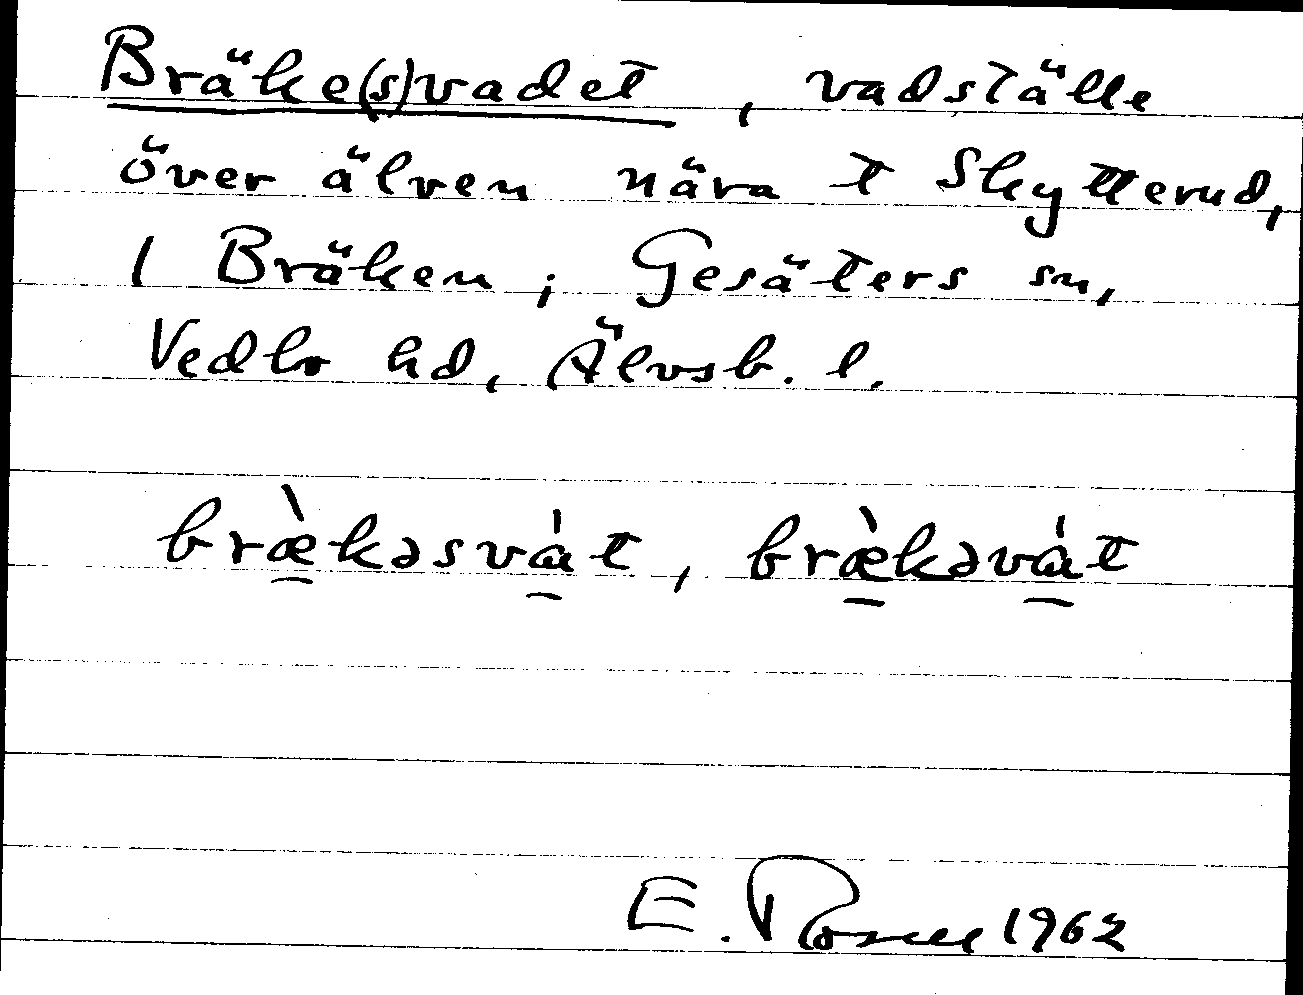 Bräke(s)vadet, vadställe
över älven nära t Skytterud,
1 Bräken; Gesäters sn,
Vedbo hd, Älvsb. l.
bræ̀kəsvát, bræ̀kəvát
E. 1962